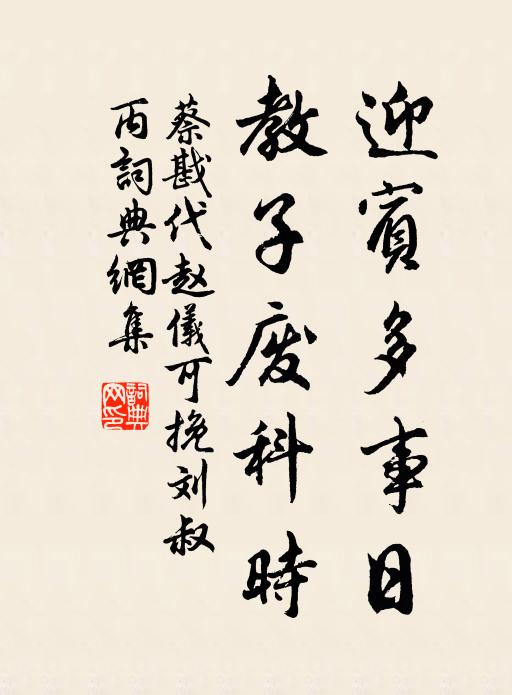 迎賓多事日
教子废科時
蔡戡代赵儀可挽刘叔
丙詞典網集
詞典网印